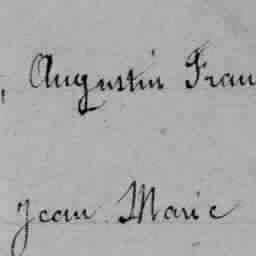 , Augustin Fran
Jean Marie